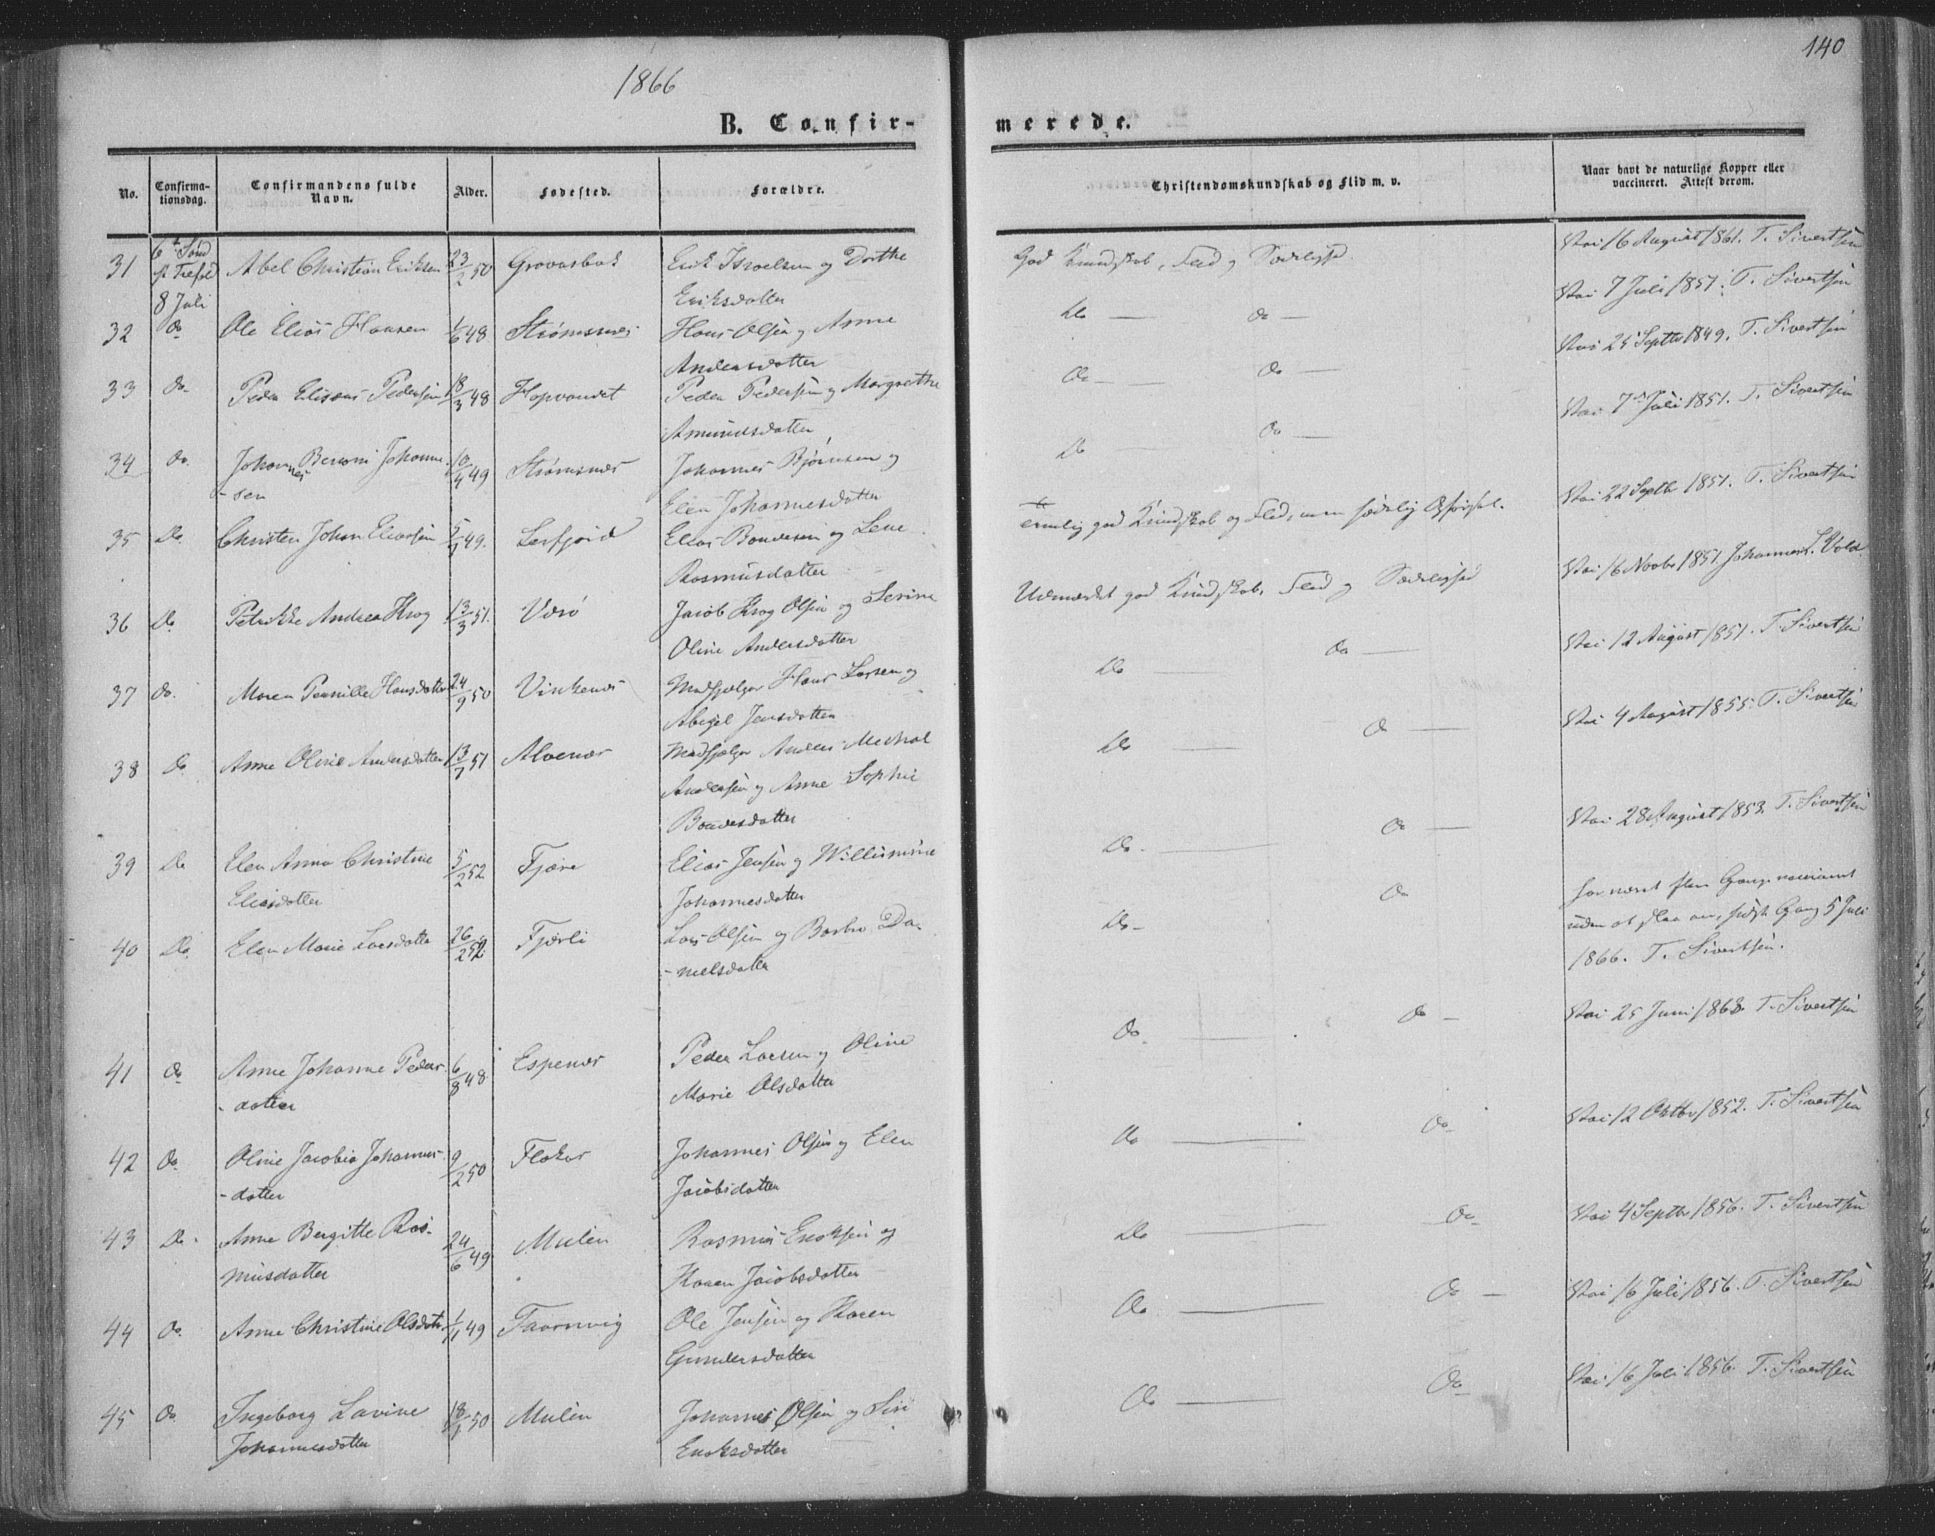 140
1866
B. Confir-
merede.
No.
Confirma-
tionsdag.
Confirmandens fulde
Navn.
Alder.
Fødested.
Forældre.
Christendomskundskab og Flid m. v.
Naar havt de naturlige Kopper eller
vaccineret. Attest derom.
31 6te Sønd
8 Juli
Abel Christian Eriksen 23/2 50
Erik Israelsen og Dorthe
Eriksdatter
God Kundskab, Flid og Sædelighed.
Vac. 16 August 1861. T. Sivertsen
32 do Ole Elias Hansen 1/6 48 Strømsnes Hans Olsen og Anne
Andersdatter
Do — do —
Vac. 7 Juli 1851. T. Sivertsen
33 do. Peder Eliseus Pedersen 18/3 48 Hopvandet Peder Pedersen og Margrethe
Amundsdatter
Do — Do —
Vac. 25 Septbr 1849. T. Sivertsen
34 do. Johannes Benoni Johanne-
-sen
10/4 49 Strømsnes Johannes Bjørnsen og
Elen Johannesdatter
Do — Do —
Vac. 7de Juli 1851. T. Sivertsen
35 Do Christen Johan Eliassen 49. Leifjord Elias Bondesen og Lene
Rasmusdatter
temlig god Kundskab og Flid, men sædelig Opførsel.
Vac. 22 Septbr 1851. T. Sivertsen
36 Do Petrikke Andrea Krog 13/3 51. Værø Jacob Krog Olsen og Serine
Oline Andersdatter
Udmærket god Kundskab, Flid og Sædelighed
Vac. 16 Novbr 1851. Johannes L. Vold
37 do. Maren Pernille Hansdatter 24/9 50 Vinkenes Hans Larsen og
Abigel Jensdatter
Do — Do —
Vac. 12 August 1851. T. Sivertsen
38 do Anne Olivie Andersdatter 13/7 51 Alvenæs Anders Mechal
Andersen og Anne Sophie
Bondesdatter
Do — Do —
Vac. 4 August 1855. T. Sivertsen
39 Do Elen Anna Christine
Eliasdatter
5/2 52 Fjære Elias Jensen og Willumine
Johannesdatter
Do. — Do —
Vac. 28 August 1853. T. Sivertsen
40 Do. Elen Marie Larsdatter 26/2 52 Fjærli Lars Olsen og Barbro Da-
-nielsdatter
Do — Do
har været flere Gange vaccineret
uden at slaa an, sidste Gang 5 Juli
1866. T. Sivertsen.
41 do Anne Johanne Peders-
-datter
6/8 48 Espenæs Peder Larsen og Oline
Marie Olsdatter
Do. — Do —
Vac. 25 Juni 1863. T. Sivertsen
42 do. Oline Jacobia Johannes-
-datter
9/2 50 Flakar Johannes Olsen og Elen
Jacobsdatter
Do — Do
Vac. 12 Oktbr 1852. T. Sivertsen
43 Do. Anne Bergitte Ras-
musdatter
24/6 49 Mulen Rasmus Enoksen og
Karen Jacobsdatter
Do — Do
Vac. 4 Septbr 1856. T. Sivertsen
44 do. Anne Christine Olsdatter 49 Taarnvig Ole Jensen og Karen
Gundersdatter
Do — Do —
Vac. 16 Juli 1856. T. Sivertsen
45 do Ingeborg Lavine
Johannesdatter
50 Mulen Johannes Olsen og Siri
Enoksdatter
Do — Do
Vac. 16 Juli 1856. T. Sivertsen